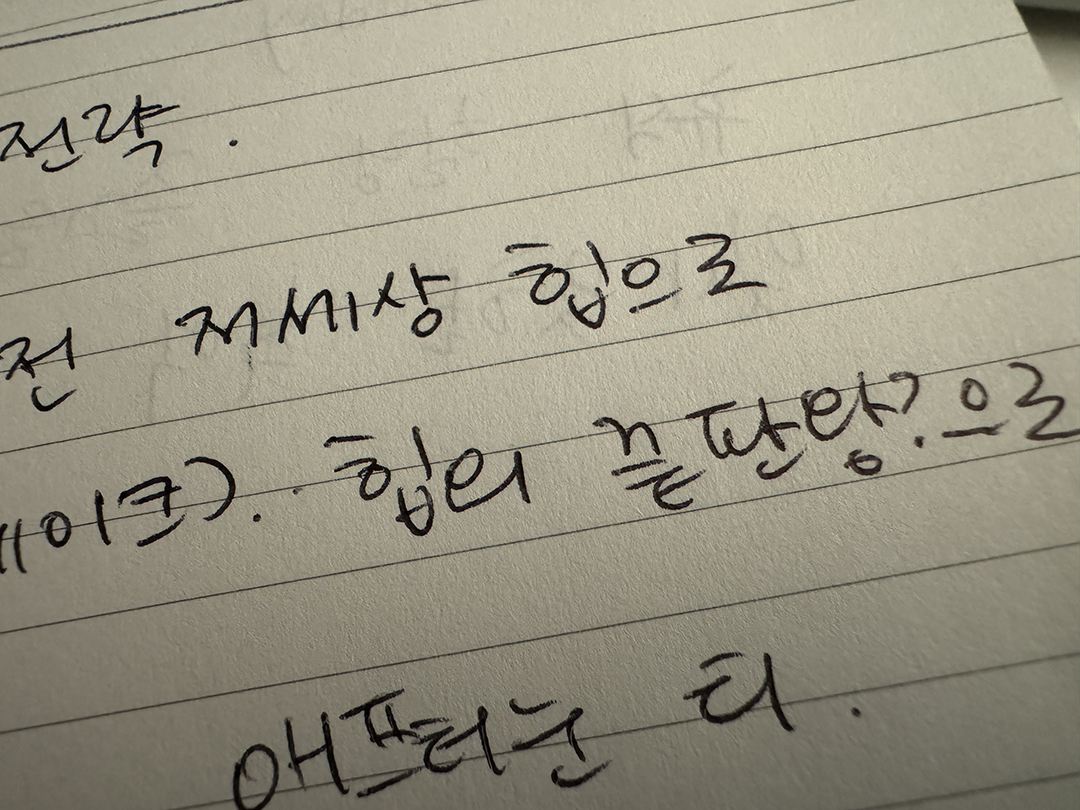 전략.
전 저세상 힙으로
이크). 힙의 끝판왕?으로
애프터눈 티.